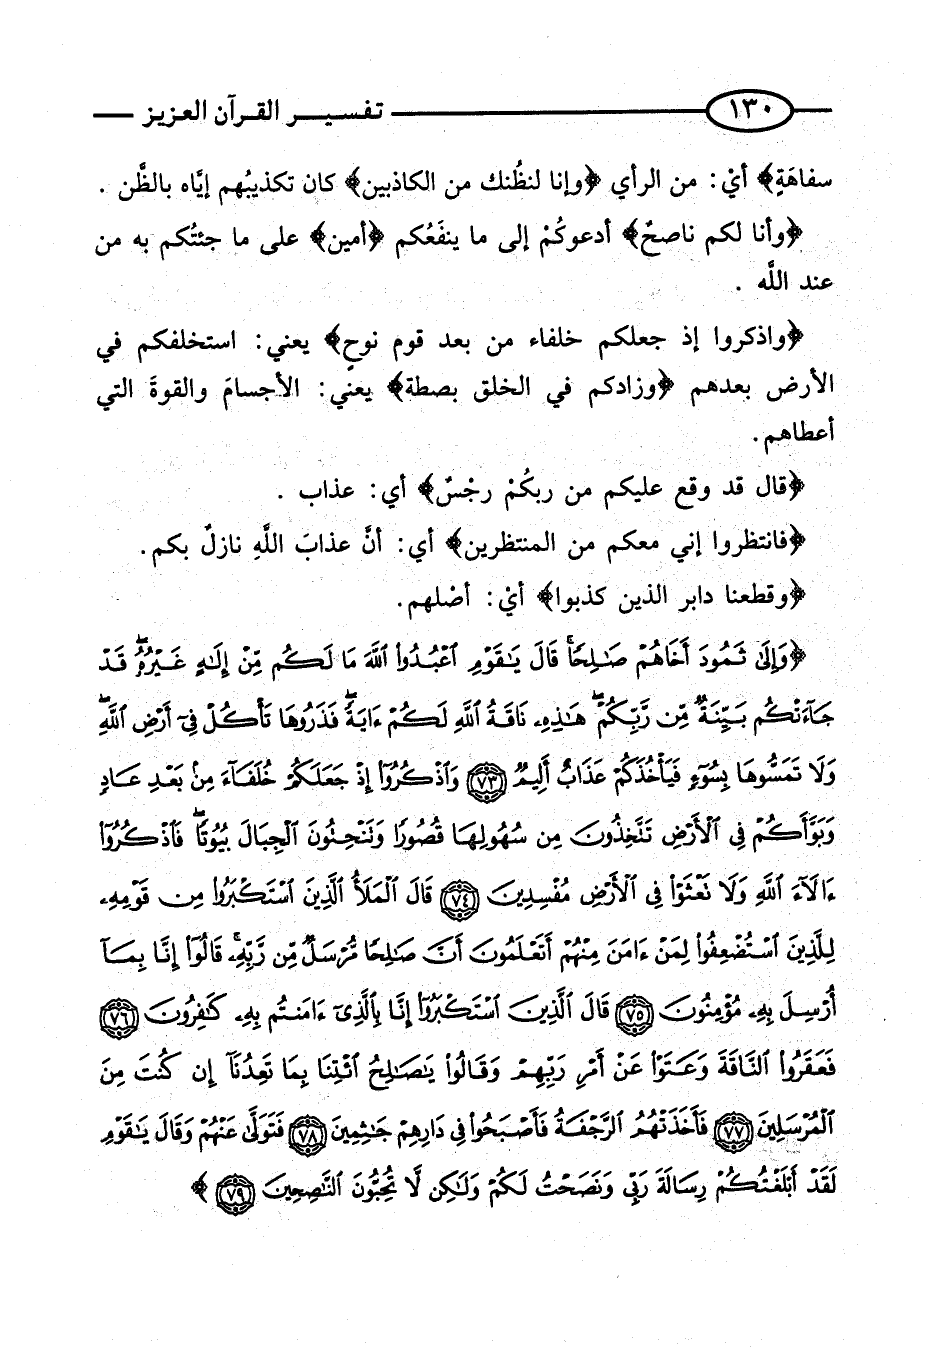 ١٣٠ تفسير القرآن العزيز
سفاهَةٍ﴾ أيْ: من الرأي ﴿وإنا لنظُنك من الكاذبين﴾ كان تكذيبُهم إيَّاه بالظَّن .
﴿وأنا لكم ناصحٌ﴾ أدعوكُمْ إلى ما ينفَعُكم ﴿أمين﴾ على ما جئتُكم به من
عند اللَّه .
﴿واذكروا إذ جعلكم خلفاء من بعد قوم نوحٍ﴾ يعني: استخلفكم في
الأرض بعدهم ﴿وزادكم في الخلق بصطة﴾ يعني: الأجسامَ والقوةَ التي
أعطاهم.
﴿قال قد وقع عليكم من ربكُمْ رجْسٌ﴾ أي: عذاب .
﴿فانتظروا إني معكم من المنتظرين﴾ أي: أنَّ عذابَ اللَّهِ نازلٌ بكم.
﴿وقطعنا دابر الذين كذبوا﴾ أيْ: أصْلهم.
﴿وَإِلَىٰ ثَمُودَ أَخَاهُمْ صَٰلِحًاۗ قَالَ يَٰقَوْمِ ٱعْبُدُوا۟ ٱللَّهَ مَا لَكُم مِّنْ إِلَٰهٍ غَيْرُهُۥۖ قَدْ
جَآءَتْكُم بَيِّنَةٌ مِّن رَّبِّكُمْۖ هَٰذِهِۦ نَاقَةُ ٱللَّهِ لَكُمْ ءَايَةًۖ فَذَرُوهَا تَأْكُلْ فِىٓ أَرْضِ ٱللَّهِۖ
وَلَا تَمَسُّوهَا بِسُوٓءٍ فَيَأْخُذَكُمْ عَذَابٌ أَلِيمٌ ٧٣ وَٱذْكُرُوٓا۟ إِذْ جَعَلَكُمْ خُلَفَآءَ مِنۢ بَعْدِ عَادٍ
وَبَوَّأَكُمْ فِى ٱلْأَرْضِ تَتَّخِذُونَ مِن سُهُولِهَا قُصُورًا وَتَنْحِتُونَ ٱلْجِبَالَ بُيُوتًاۖ فَٱذْكُرُوٓا۟
ءَالَآءَ ٱللَّهِ وَلَا تَعْثَوْا۟ فِى ٱلْأَرْضِ مُفْسِدِينَ ٧٤ قَالَ ٱلْمَلَأُ ٱلَّذِينَ ٱسْتَكْبَرُوا۟ مِن قَوْمِهِۦ
لِلَّذِينَ ٱسْتُضْعِفُوا۟ لِمَنْ ءَامَنَ مِنْهُمْ أَتَعْلَمُونَ أَنَّ صَٰلِحًا مُّرْسَلٌ مِّن رَّبِّهِۦۚ قَالُوٓا۟ إِنَّا بِمَآ
أُرْسِلَ بِهِۦ مُؤْمِنُونَ ٧٥ قَالَ ٱلَّذِينَ ٱسْتَكْبَرُوٓا۟ إِنَّا بِٱلَّذِىٓ ءَامَنتُم بِهِۦ كَٰفِرُونَ ٧٦
فَعَقَرُوا۟ ٱلنَّاقَةَ وَعَتَوْا۟ عَنْ أَمْرِ رَبِّهِمْ وَقَالُوا۟ يَٰصَٰلِحُ ٱئْتِنَا بِمَا تَعِدُنَآ إِن كُنتَ مِنَ
ٱلْمُرْسَلِينَ ٧٧ فَأَخَذَتْهُمُ ٱلرَّجْفَةُ فَأَصْبَحُوا۟ فِى دَارِهِمْ جَٰثِمِينَ ٧٨ فَتَوَلَّىٰ عَنْهُمْ وَقَالَ يَٰقَوْمِ
لَقَدْ أَبْلَغْتُكُمْ رِسَالَةَ رَبِّى وَنَصَحْتُ لَكُمْ وَلَٰكِن لَّا تُحِبُّونَ ٱلنَّٰصِحِينَ ٧٩﴾